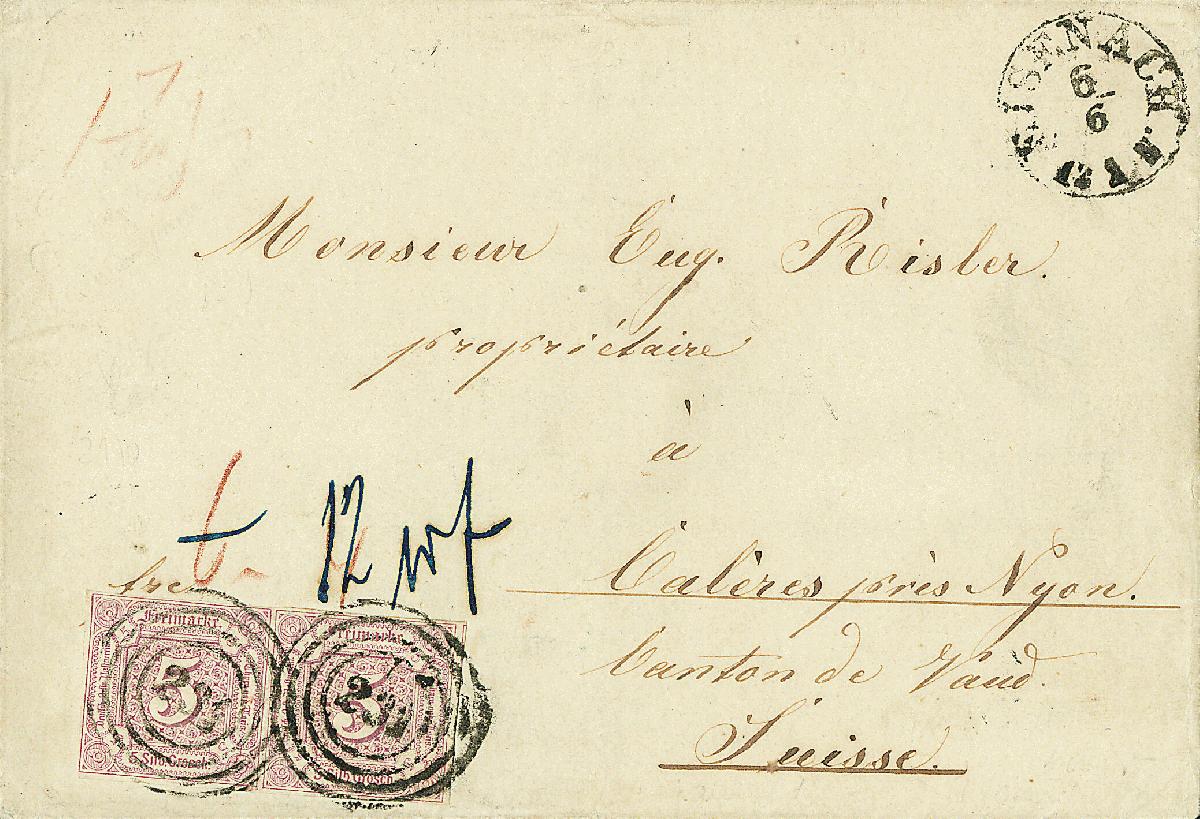 EISENACH. N. V.
6
6
12
Monsieur Eug. Risler.
propriétaire
à
Calères près Nyon.
Canton de Vaud.
Suisse.
12
Freimarke
5
Silb. Grosch
Freimarke
5
Silb. Grosch